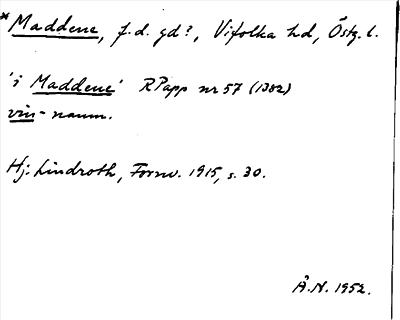 * Maddene, f.d. gd?, Vifolka hd, Östg. l.
'i Maddene' RPapp nr 57 (1382)
vin- namn.
Hj. Lindroth, Fornv. 1915, s. 30.
Å.N. 1952.